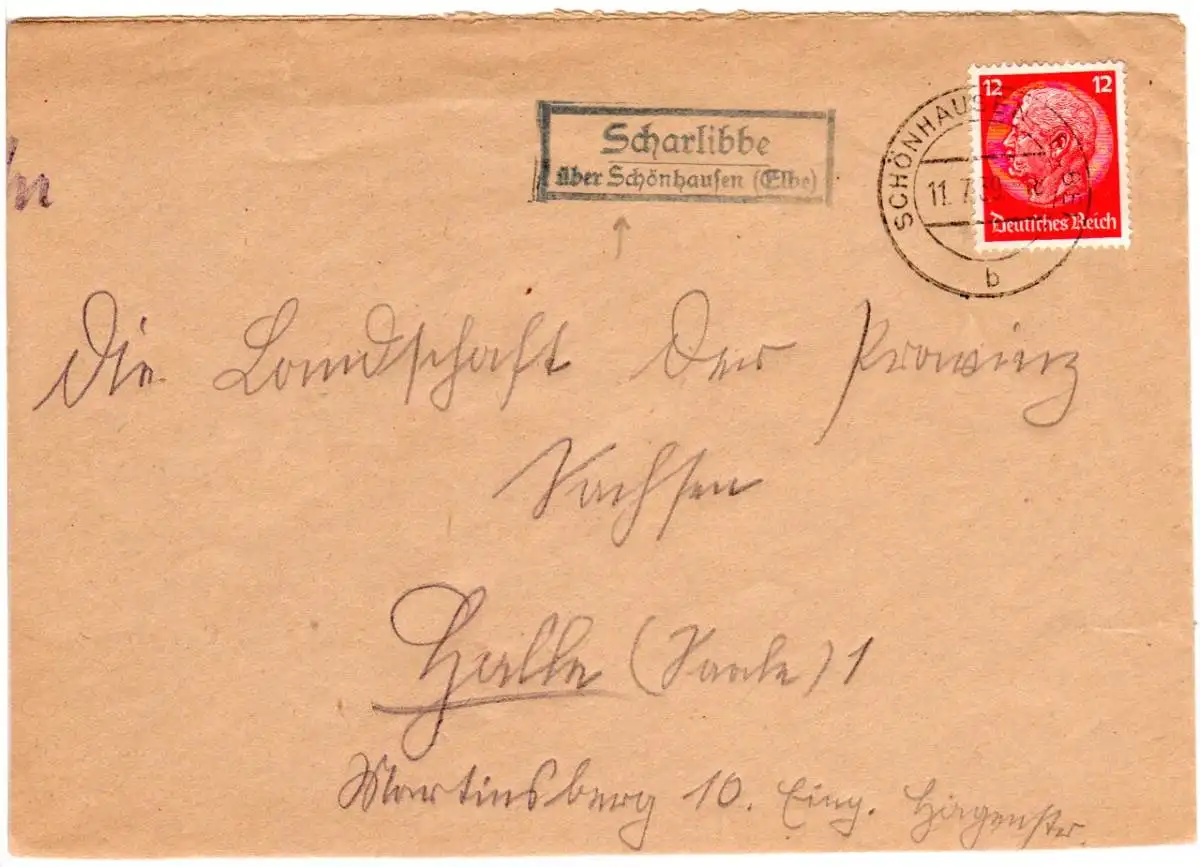 12 12
Scharlibbe
über Schönhausen (Elbe)
SCHÖNHAUSEN (ELBE)
11. 7. 39
b
Deutsches Reich
Die Landschaft der Provinz
Sachsen
Halle (Saale) 1
Martinsberg 10. Eing. Hagenstr.